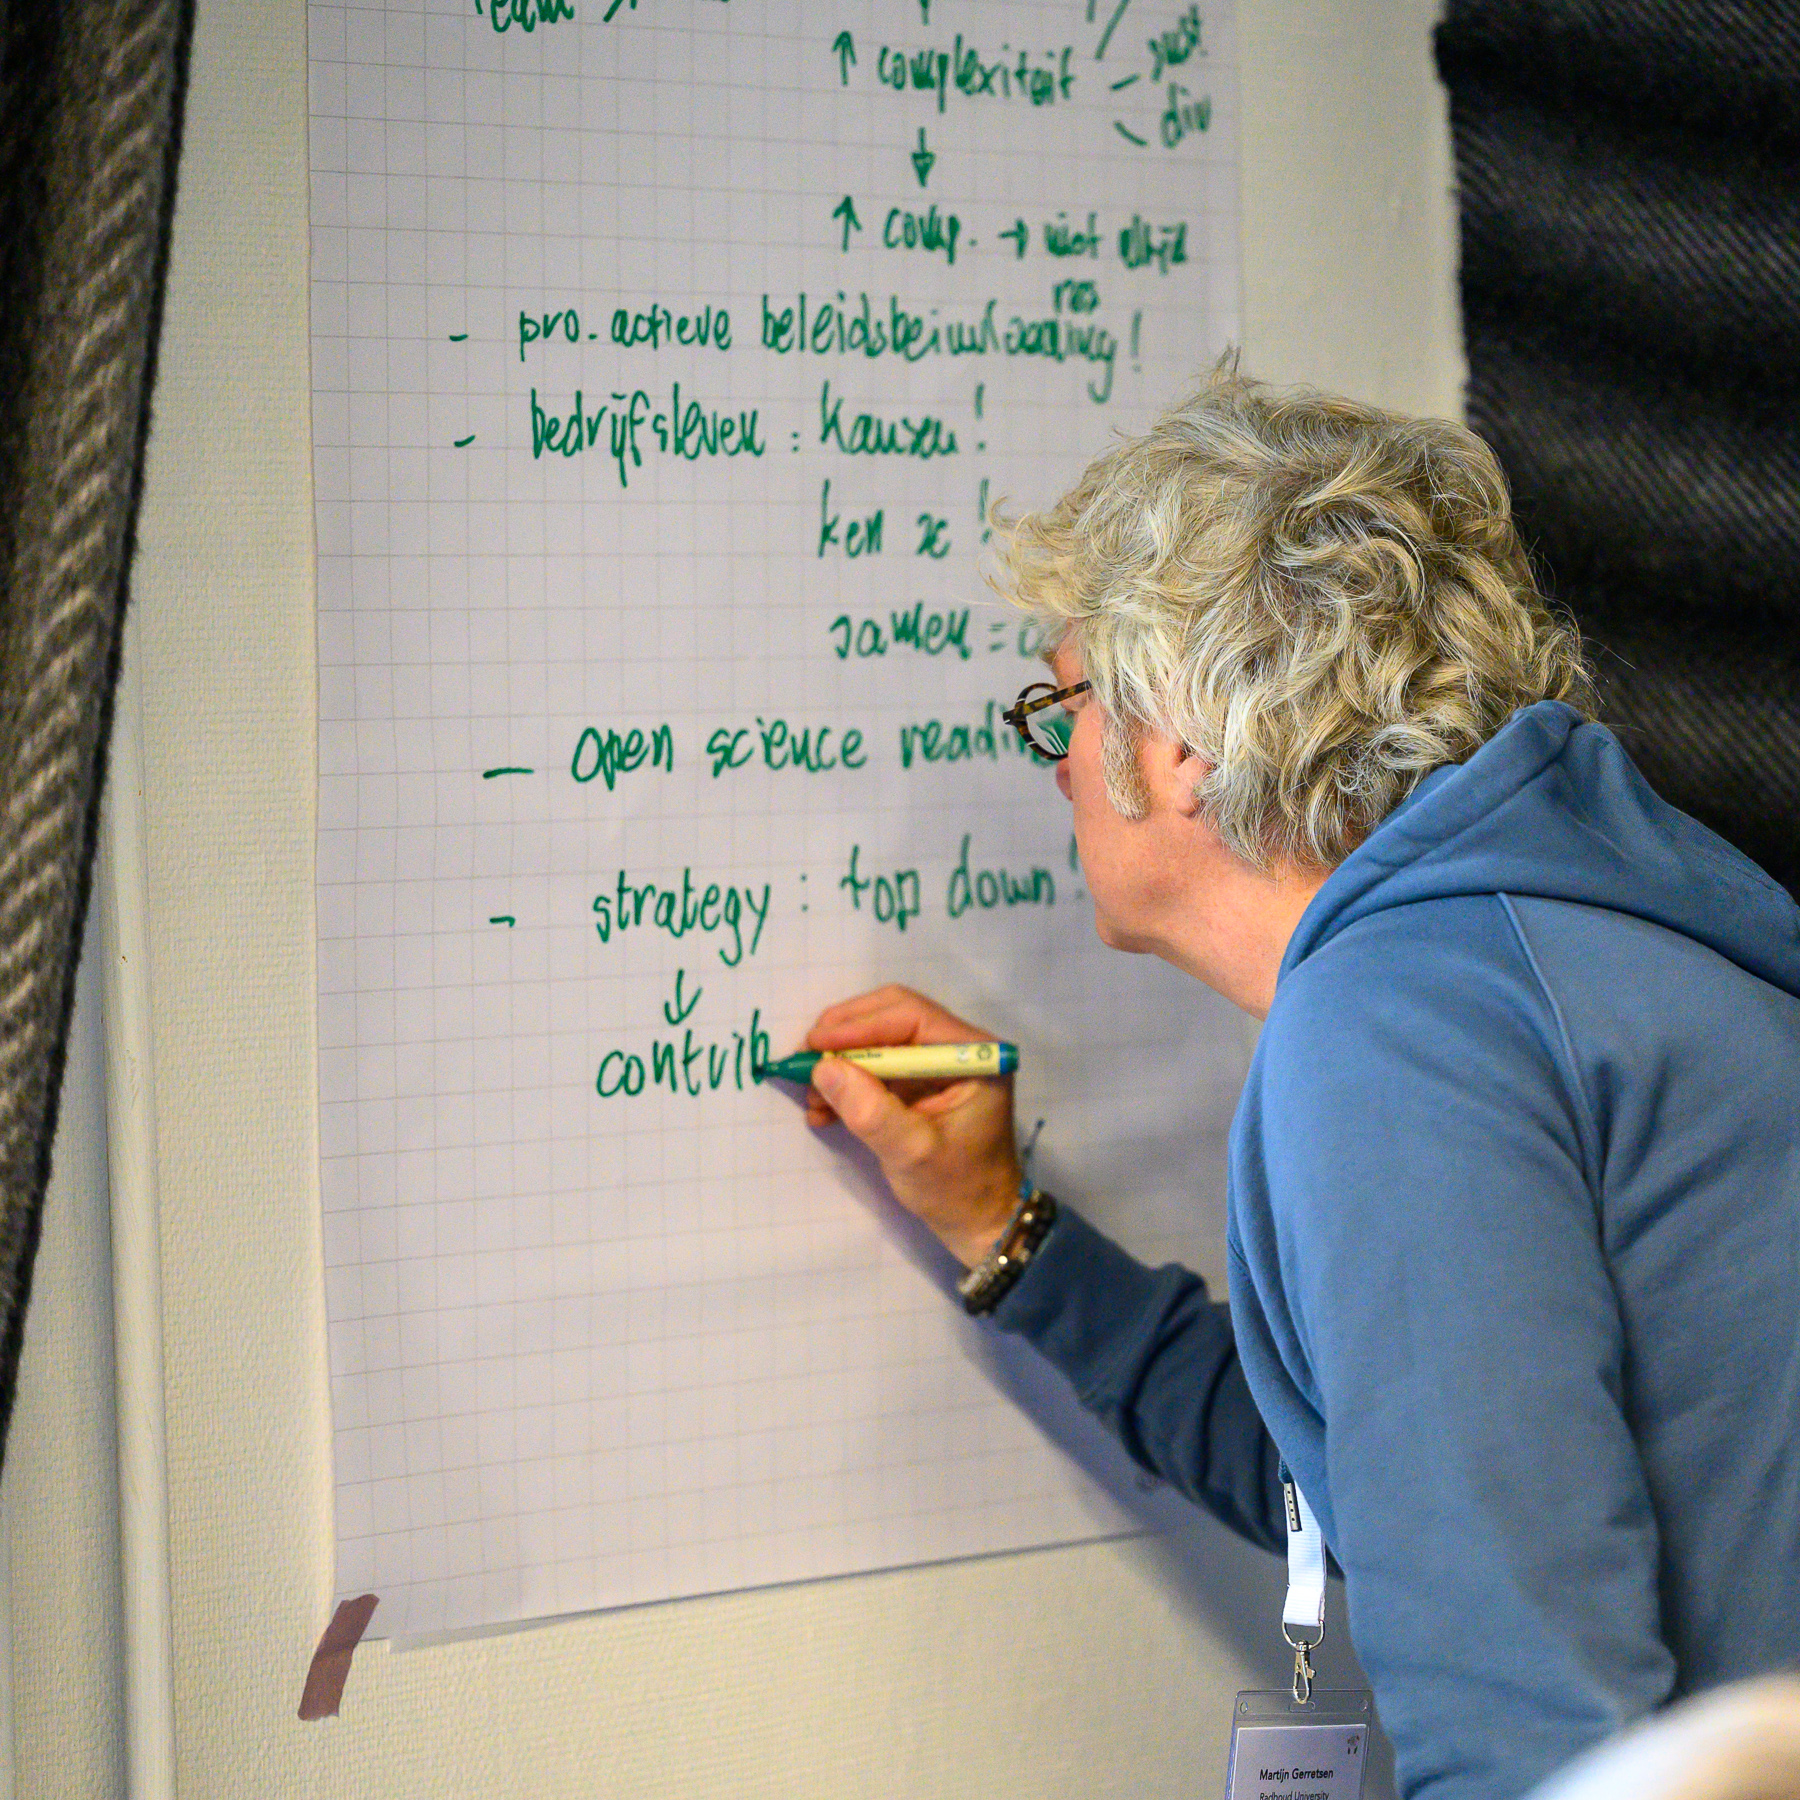 Team
↑ complexiteit
div
↓
↑ comp. → niet altijd
res
- pro-actieve beleidsbeinvloeding!
- bedrijfsleven: kansen!
ken ze!
samen =
— open science readin
- strategy: top down!
↓
contrib
Martijn Gerretsen
Radboud University